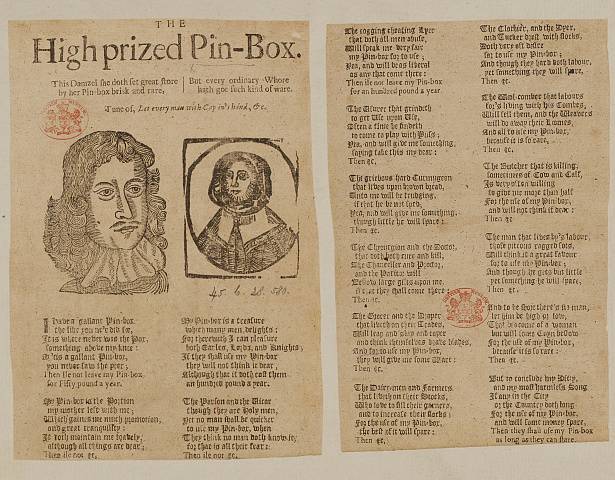 THE
High prized Pin-Box.
This Damzel she doth set great store
by her Pin-box brisk and rare,
But every ordinary Whore
hath got such kind of ware.
Tune of, Let every man with Cap in's hand, &c.
45. 6. 28. 580.
I have a gallant Pin-box,
the like you ne'r did see,
It is where never was the Pox,
something above my knee:
O 'tis a gallant Pin-box,
you never saw the peer;
Then Ile not leave my Pin-box,
for Fifty pound a year.
My Pin-box is the Portion
my mother left with me;
Which gains me much promotion,
and great tranquility:
It doth maintain me bravely,
although all things are dear;
Then ile not &c.
My Pin-box is a treasure
which many men delights;
For therewith I can pleasure
both Earles, Lords, and Knights;
If they shall use my Pin-box
they will not think it dear,
Although that it doth cost them
an hundred pound a year.
The Parson and the Vicar
though they are Holy men,
Yet no man shall be quicker
to use my Pin-box, when
They think no man doth know it,
for that is all their fear:
Then ile not &c.
The cogging cheating Lyer
that doth all men abuse,
Will speak me very fair
my Pin-box for to use;
Yea, and will be as liberal
as any that come there:
Then ile not leave my Pin-box
for an hundred pound a year.
The Usurer that grindeth
to get Use upon Use,
Often a time he findeth
to come to play with Puss;
Yea, and will give me something,
saying take this my dear:
Then &c.
The grievous hard Curmugeon
that lives upon brown bread,
Unto me will be trudging,
if that he be not sped;
Yea, and will give me something,
though little he will spare:
Then &c.
The Chyrurgion and the Doctor,
that doth both cure and kill,
The Chancellor and Proctor,
and the Paritor will
Bestow large gifts upon me,
if that they shall come there
Then &c.
The Grocer and the Draper
that liveth on their Trades,
Will leap and skip and caper
and think themselves brave blades,
And for to use my Pin-box,
they will give me some Ware:
Then &c.
The Dairy-men and Farmers
that liveth on their Stocks,
Who love to fill their garners,
and to increase their flocks;
For the use of my Pin-box,
the best of it will spare:
Then &c.
The Clothier, and the Dyer,
and Tucker dyed with flocks,
Doth very oft desire
for to use my Pin-box;
And though they hard doth labour,
yet something they will spare,
Then &c.
The Wool-comber that labours
for's living with his Combes,
Will sell them, and the Weavers
will do away their Loomes,
And all to use my Pin-box,
because it is so rare,
Then &c.
The Butcher that is killing,
sometimes of Cow and Calf,
Is very often willing
to give me more than half
For the use of my Pin-box,
and will not think it dear:
Then &c.
The man that lives by's labour,
those pitious ragged sots,
Will think it a great favour
for to use my Pin-box;
And though he gets but little
yet something he will spare,
Then &c.
And to be short there's no man,
let him be high or low,
That becomes of a woman
but will some Coyn bestow
For the use of my Pin-box,
because it is so rare:
Then &c.
But to conclude my Ditty,
and my most harmless Song
If any in the City
or the Country doth long
For the use of my Pin-box,
and will some money spare,
Then they shall use my Pin-box
as long as they can stare.